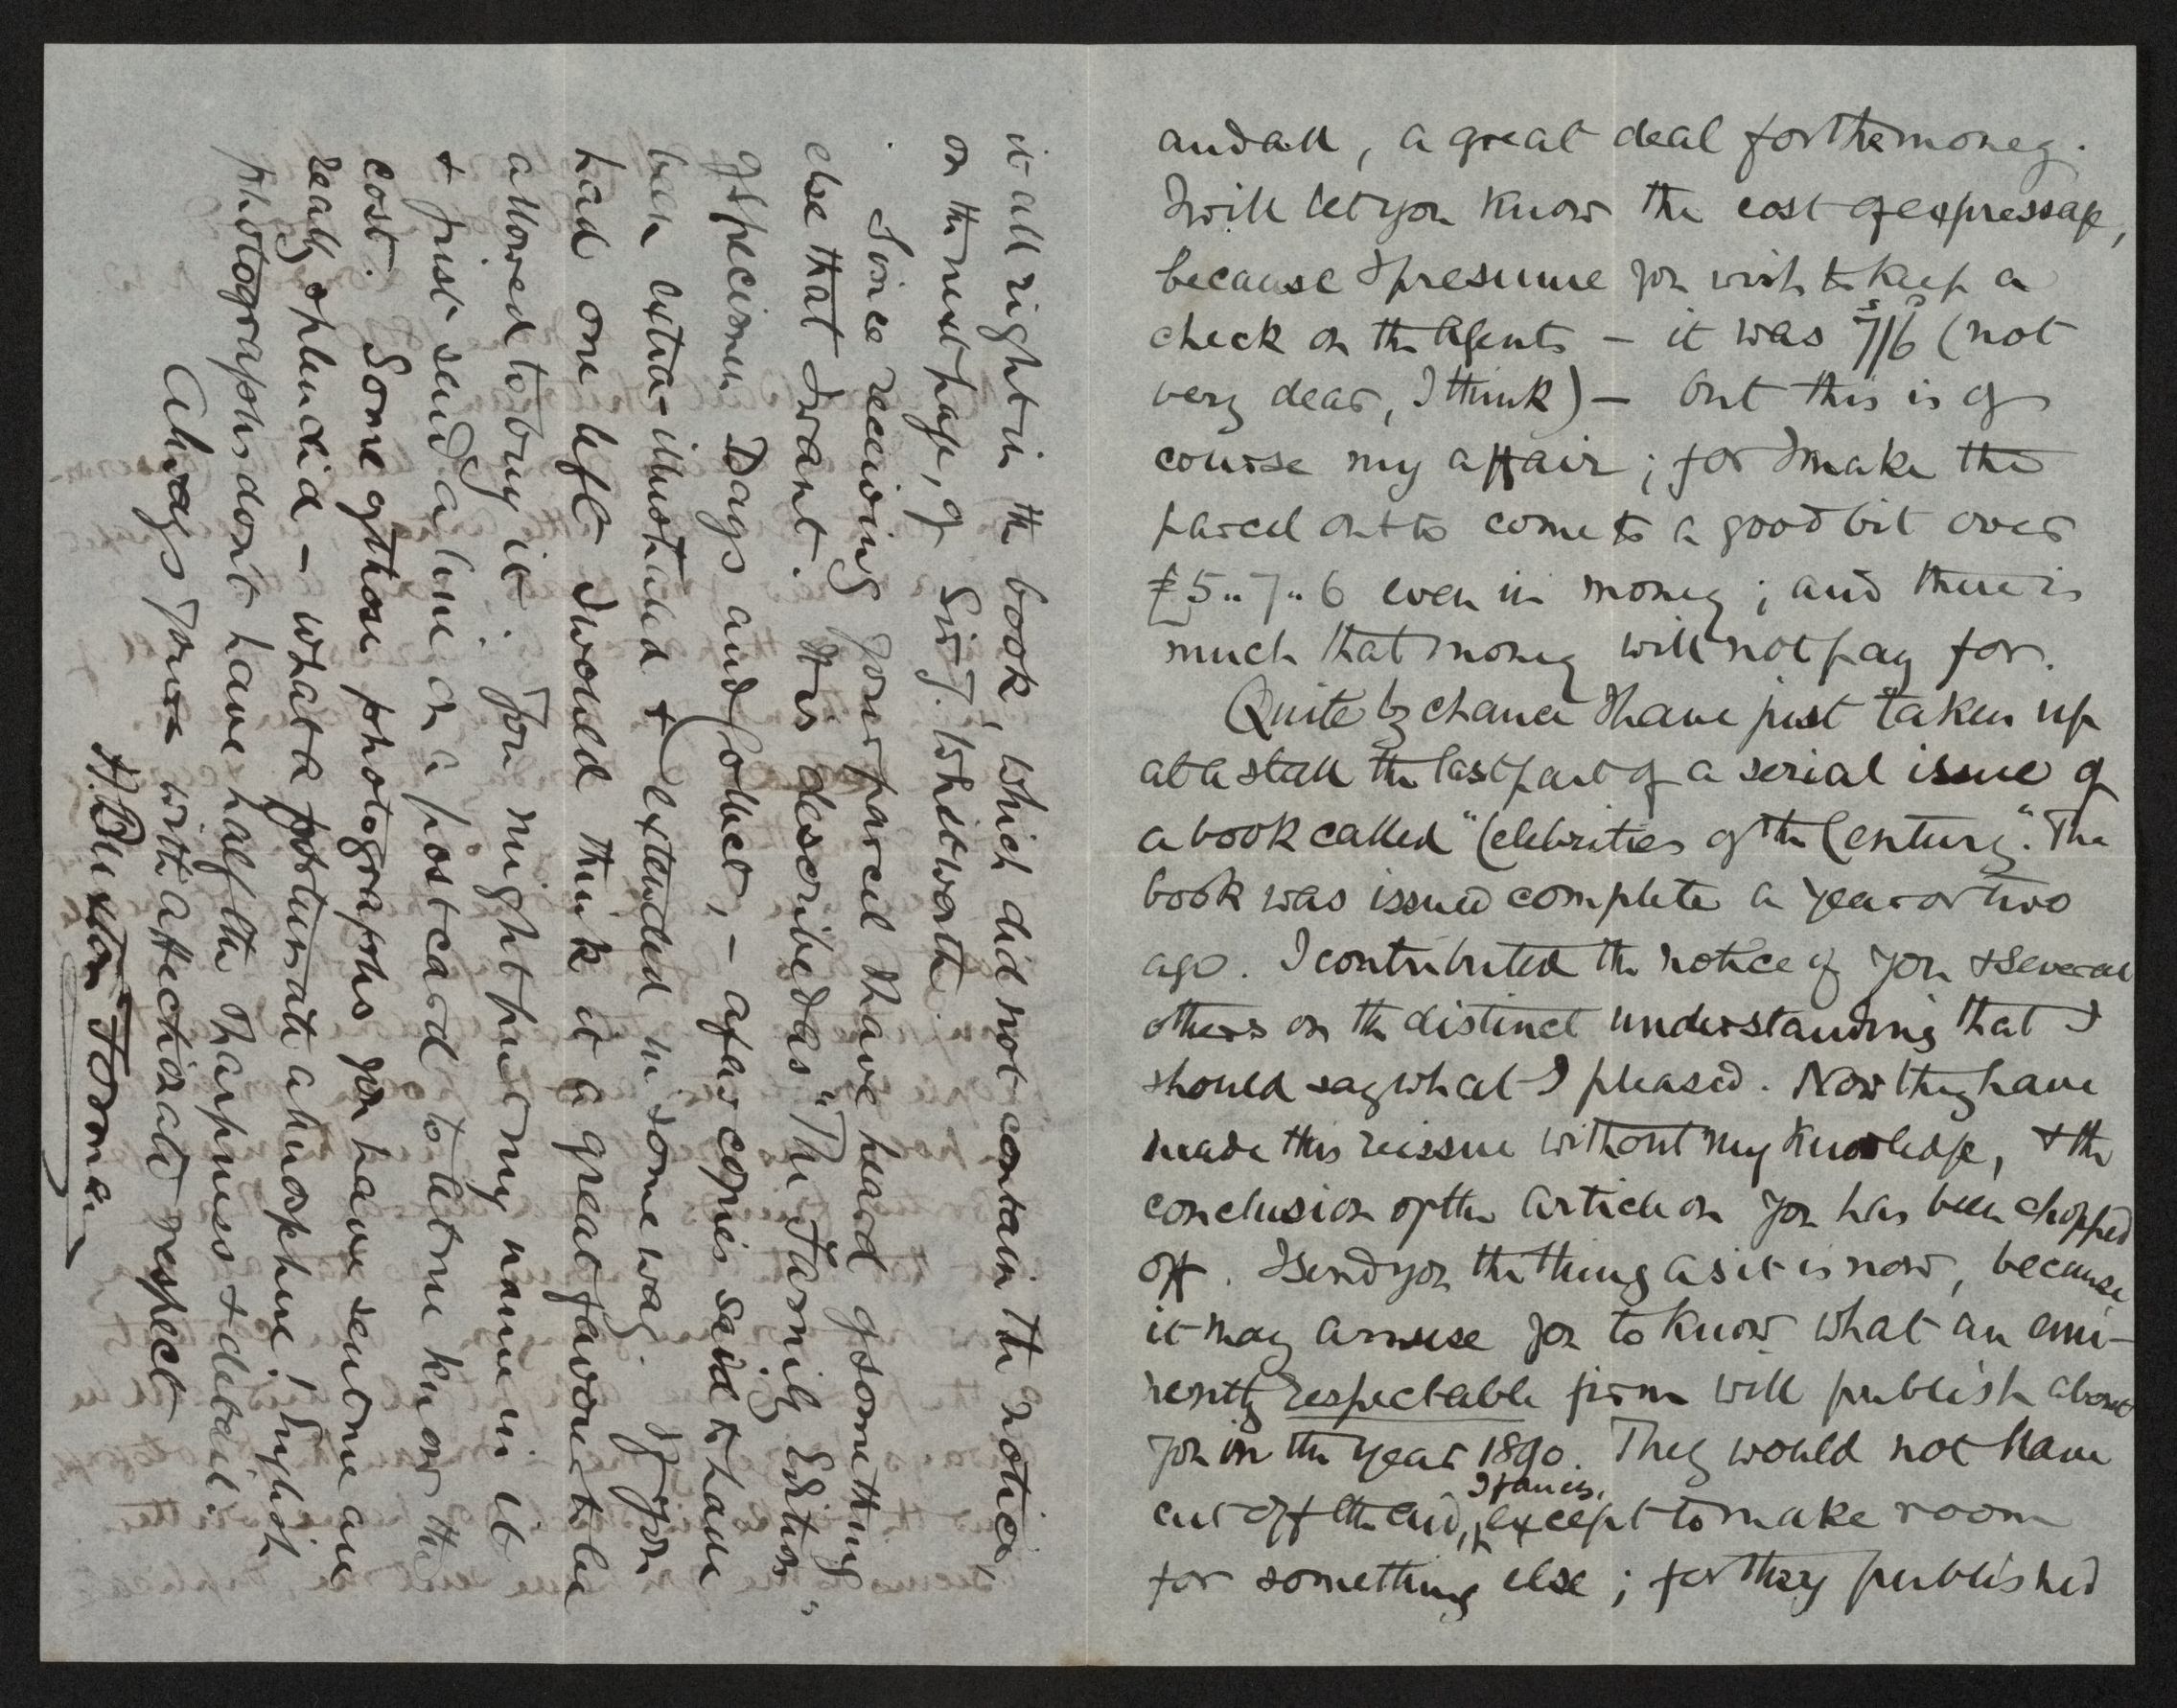 and all, a great deal for the money.
I will let you know the cost of expressage,
because I presume you wish to keep a
check on the Agents – it was 7s/6d (not
very dear, I think) – but this is of
course my affair; for I make the
parcel out to come to a good bit over
£5..7..6 even in money; and there is
much that money will not pay for.
Quite by chance I have just taken up
at a stall the last part of a serial issue of
a book called "Celebrities of the Century". The
book was issued complete a year or two
ago. I contributed the notice of you & several
others on the distinct understanding that I
should say what I pleased. Now they have
made this reissue without my knowledge, & the
conclusion of the article on you has been chopped
off. I send you the thing as it is now, because
it may amuse you to know what an emi-
nently respectable firm will publish about
you in the year 1890. They would not have
cut off the end, I fancy, except to make room
for something else; for they published
it all right in the book, which did not contain the notice,
on the next page, of Sir J. Whitworth.
Since receiving your parcel I have heard of something
else that I want. It is described as "The Family Edition"
of Specimen Days and Collect, – a few copies said to have
been extra-illustrated & extended in some way. If you
had one left I would think it a great favour to be
allowed to buy it. You might put my name in it
& just send a line on a postcard to let me know the
cost. Some of those photographs you have sent me are
really splendid – what a fortunate atmosphere! English
photographs don't have half the sharpness & detail.
Always yours with affectionate respect
H. Buxton Forman